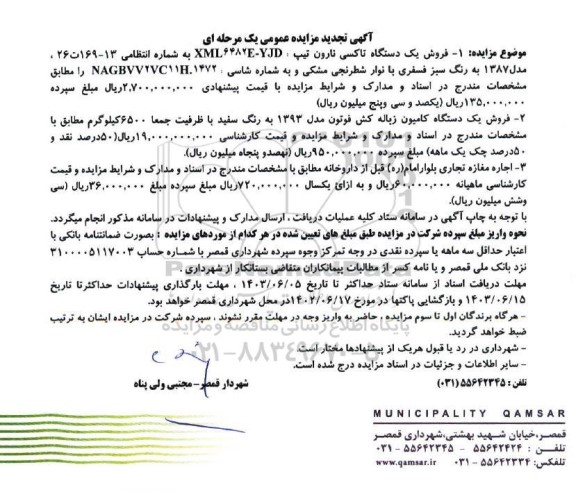 آگهی تجدید مزایده عمومی یک مرحله ای
موضوع مزایده: ۱- فروش یک دستگاه تاکسی نارون تیپ : XML۶۴۸۲E-YJD به شماره انتظامی ۱۳-۱۶۹ت۲۶ ،
مدل۱۳۸۷ به رنگ سبز فسفری با نوار شطرنجی مشکی و به شماره شاسی : NAGBVV۲VC۱۱H.۱۴۷۲ را مطابق
مشخصات مندرج در اسناد و مدارک و شرایط مزایده با قیمت پیشنهادی ۲,۷۰۰,۰۰۰,۰۰۰ریال مبلغ سپرده
۱۳۵,۰۰۰,۰۰۰ریال (یکصد و سی وپنج میلیون ریال)
۲- فروش یک دستگاه کامیون زباله کش فوتون مدل ۱۳۹۳ به رنگ سفید با ظرفیت جمعا ۶۵۰۰کیلوگرم مطابق با
مشخصات مندرج در اسناد و مدارک و شرایط مزایده و قیمت کارشناسی ۱۹,۰۰۰,۰۰۰,۰۰۰ریال(۵۰درصد نقد و
۵۰درصد چک یک ماهه) مبلغ سپرده ۹۵۰,۰۰۰,۰۰۰ریال (نهصدو پنجاه میلیون ریال).
۳- اجاره مغازه تجاری بلوارامام(ره) قبل از داروخانه مطابق با مشخصات مندرج در اسناد و مدارک و شرایط مزایده و قیمت
کارشناسی ماهیانه ۶۰,۰۰۰,۰۰۰ریال و به ازای یکسال ۷۲۰,۰۰۰,۰۰۰ریال مبلغ سپرده مبلغ ۳۶,۰۰۰,۰۰۰ریال (سی
وشش میلیون ریال).
با توجه به چاپ آگهی در سامانه ستاد کلیه عملیات دریافت ، ارسال مدارک و پیشنهادات در سامانه مذکور انجام میگردد.
نحوه واریز مبلغ سپرده شرکت در مزایده طبق مبلغ های تعیین شده در هر کدام از موردهای مزایده : بصورت ضمانتنامه بانکی با
اعتبار حداقل سه ماهه یا سپرده نقدی در وجه تمرکز وجوه سپرده شهرداری قمصر با شماره حساب ۳۱۰۰۰۰۵۱۱۷۰۰۳
نزد بانک ملی قمصر و یا نامه کسر از مطالبات پیمانکاران متقاضی بستانکار از شهرداری .
مهلت دریافت اسناد از سامانه ستاد حداکثر تا تاریخ ۱۴۰۳/۰۶/۰۵ ، مهلت بارگذاری پیشنهادات حداکثرتا تاریخ
۱۴۰۳/۰۶/۱۵ و بازگشایی پاکتها در مورخ ۱۴۰۲/۰۶/۱۷در محل شهرداری قمصر خواهد بود.
- هرگاه برندگان اول تا سوم مزایده ، حاضر به واریز وجه در مهلت مقرر نشوند ، سپرده شرکت در مزایده ایشان به ترتیب
ضبط خواهد گردید.
- شهرداری در رد یا قبول هریک از پیشنهادها مختار است.
- سایر اطلاعات و جزئیات در اسناد مزایده درج شده است.
تلفن : ۵۵۶۴۲۳۴۵ (۰۳۱)
شهردار قمصر- مجتبی ولی پناه
پایگاه اطلاع رسانی مناقصه و مزایده
۰۲۱-۸۸۳۴۹۶۷۰-۵
MUNICIPALITY QAMSAR
قمصر،خیابان شهید بهشتی،شهرداری قمصر
تلفن : ۵۵۶۴۲۴۲۴ - ۵۵۶۴۲۳۴۵ - ۰۳۱
تلفکس: ۵۵۶۴۲۳۳۴ - ۰۳۱ www.qamsar.ir